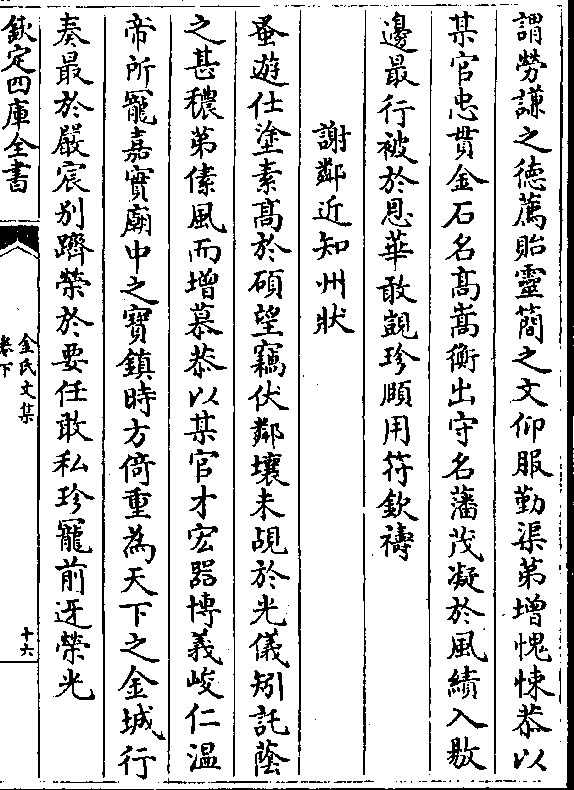 謂勞謙之徳薦貽靈蕳之文仰服勤渠第增愧悚恭以
某官忠貫金石名髙嵩衡出守名藩茂凝於風績入敭
邊最行被於恩華敢覬珍頥用符欽禱
謝鄰近知州狀
蚤遊仕塗素髙於碩望竊伏鄰壤未覘於光儀矧託蔭
之甚穠第傃風而增慕恭以某官才宏器博義峻仁温
帝所寵嘉實廟中之寶鎮時方倚重為天下之金城行
奏最於嚴宸别躋榮於要任敢私珍寵前迓榮光
欽定四庫全書
金氏文集
卷下
十六